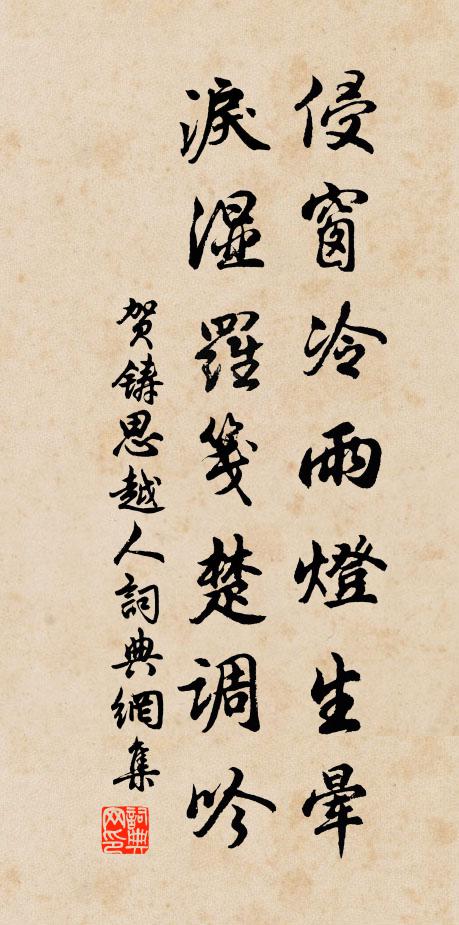 侵窗冷雨燈生暈
淚濕羅箋楚調吟
賀鑄思越人詞典網集
詞典
网印